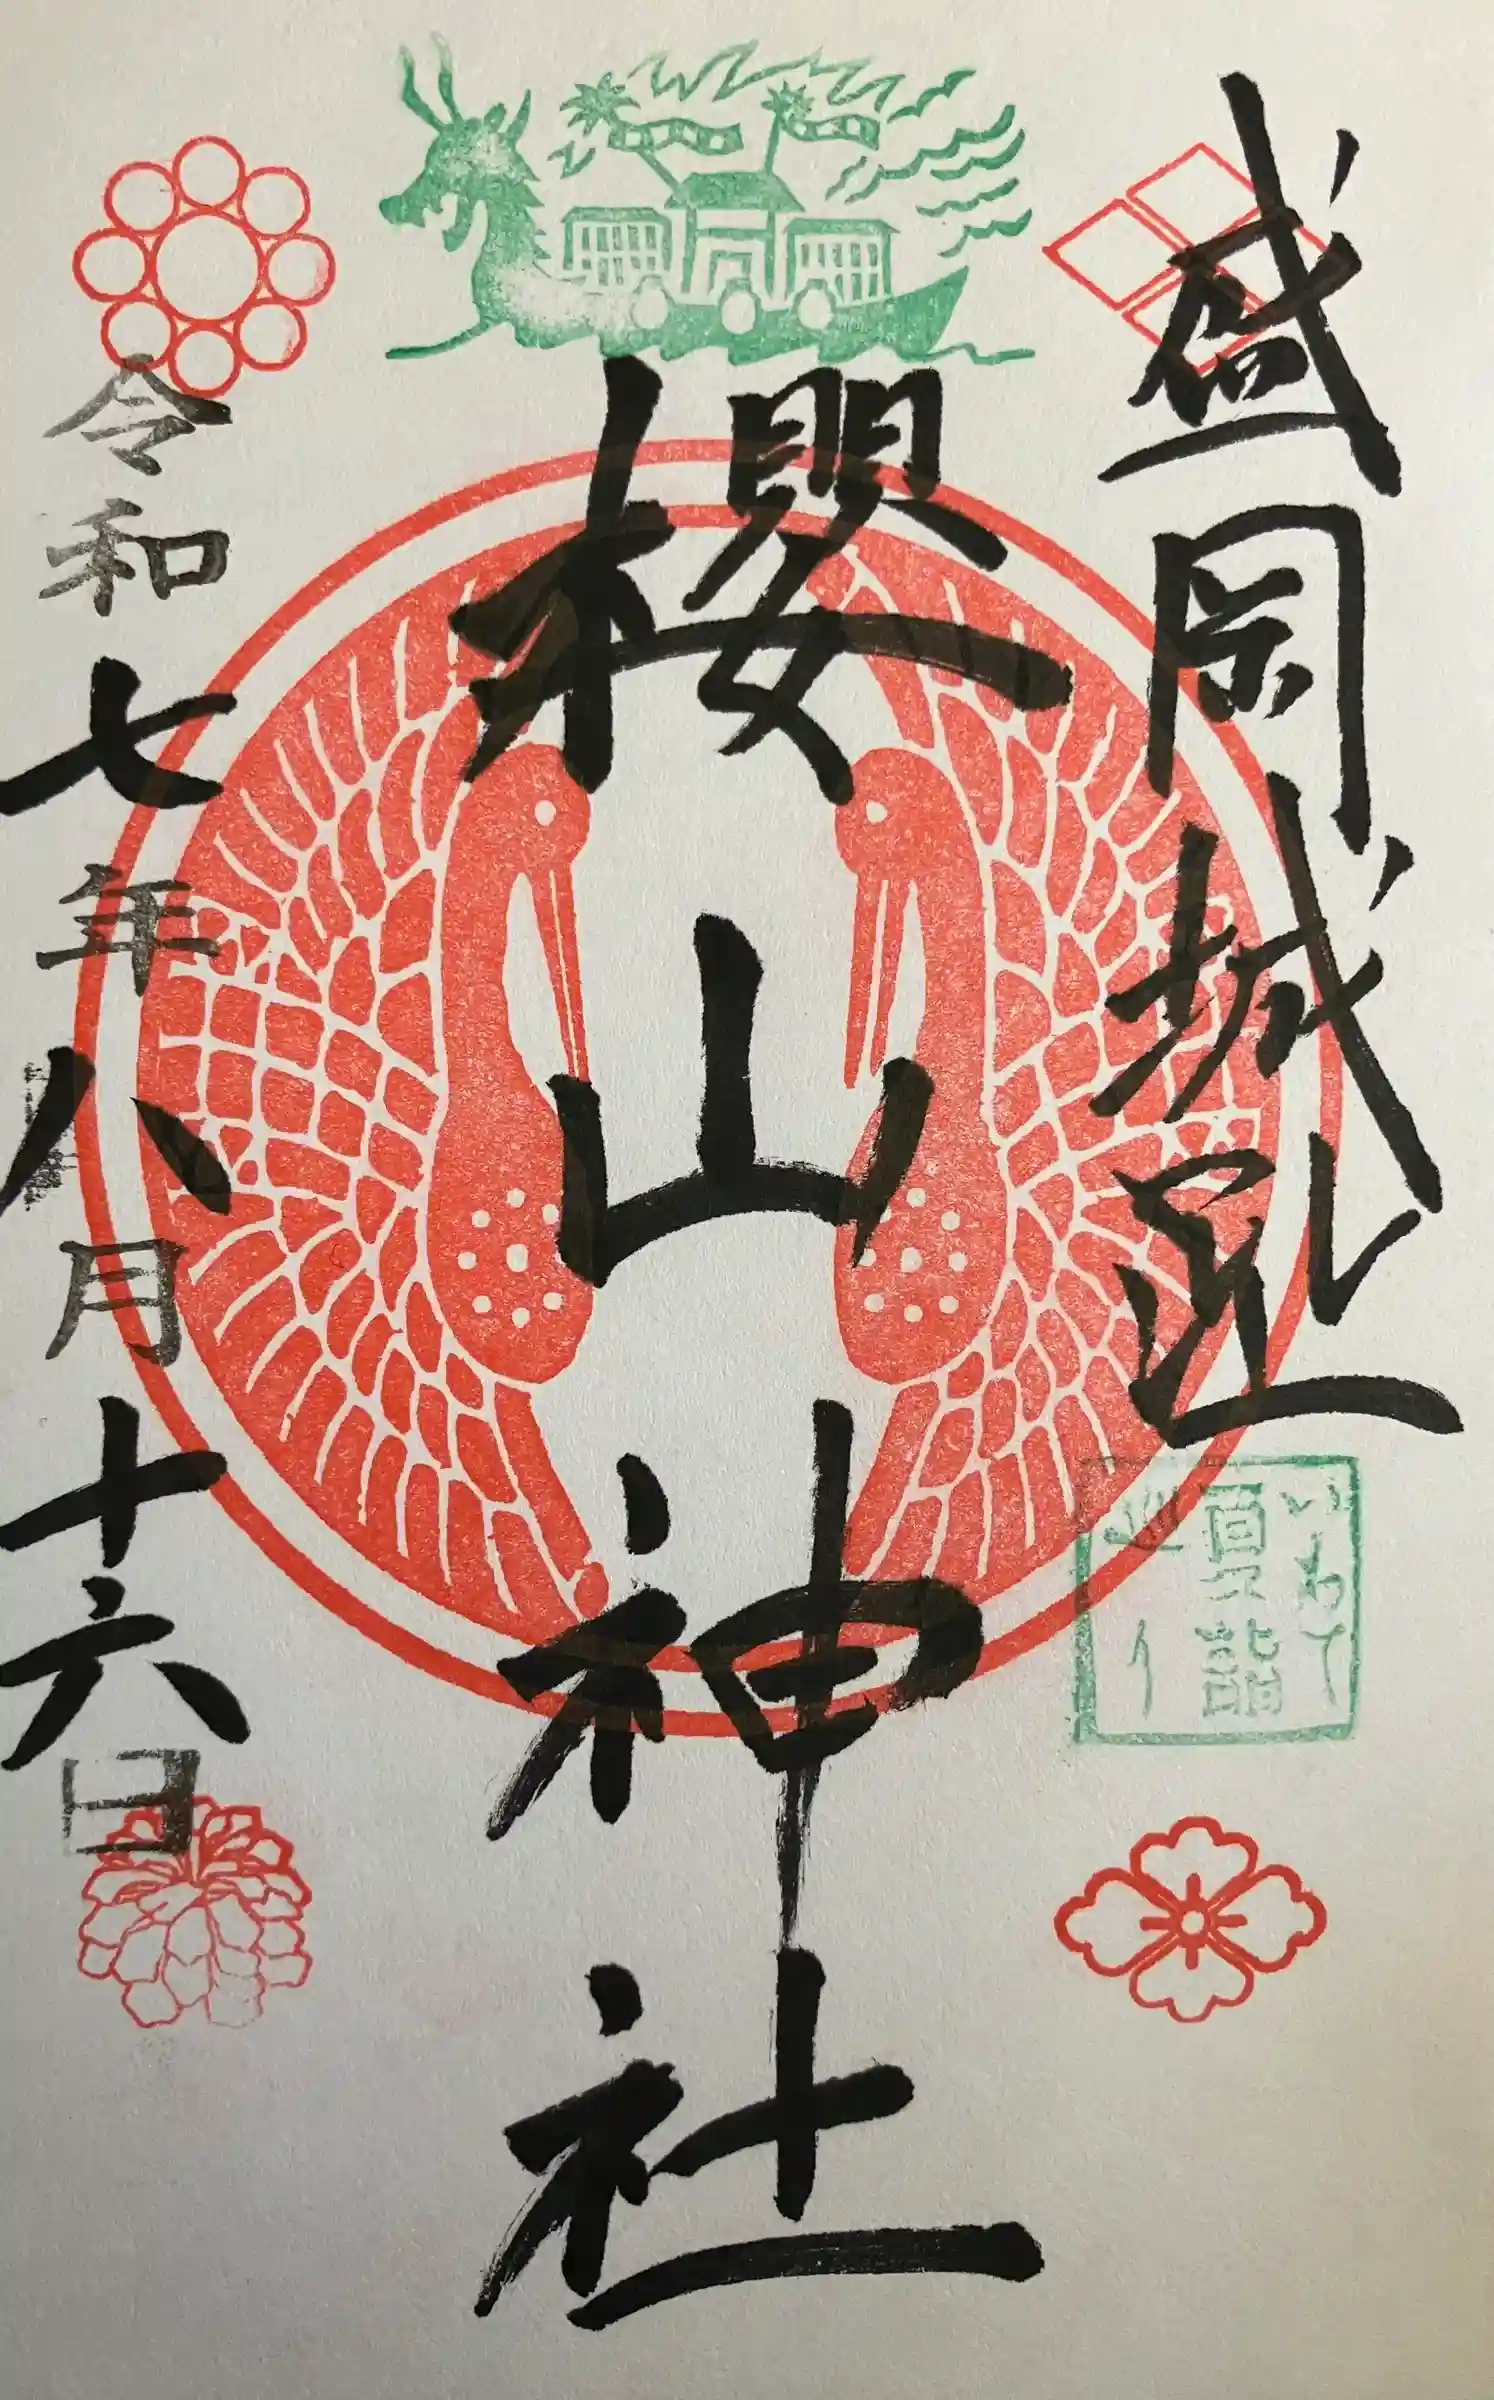 盛岡城跡
いわて
夏詣
巡り
櫻山神社
令和七年八月十六日